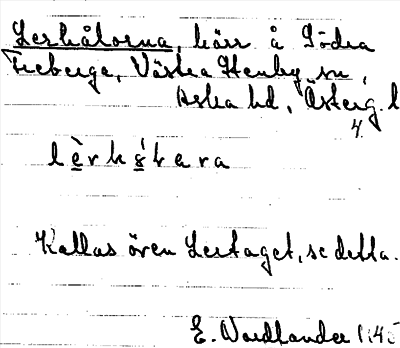 Lerhålorna, kärr å Södra
Freberga, Västra Stenby sn,
Aska hd, Österg. l
4.
lèrhålara
Kallas även Lertaget, se detta.
E. Nordlander 1945